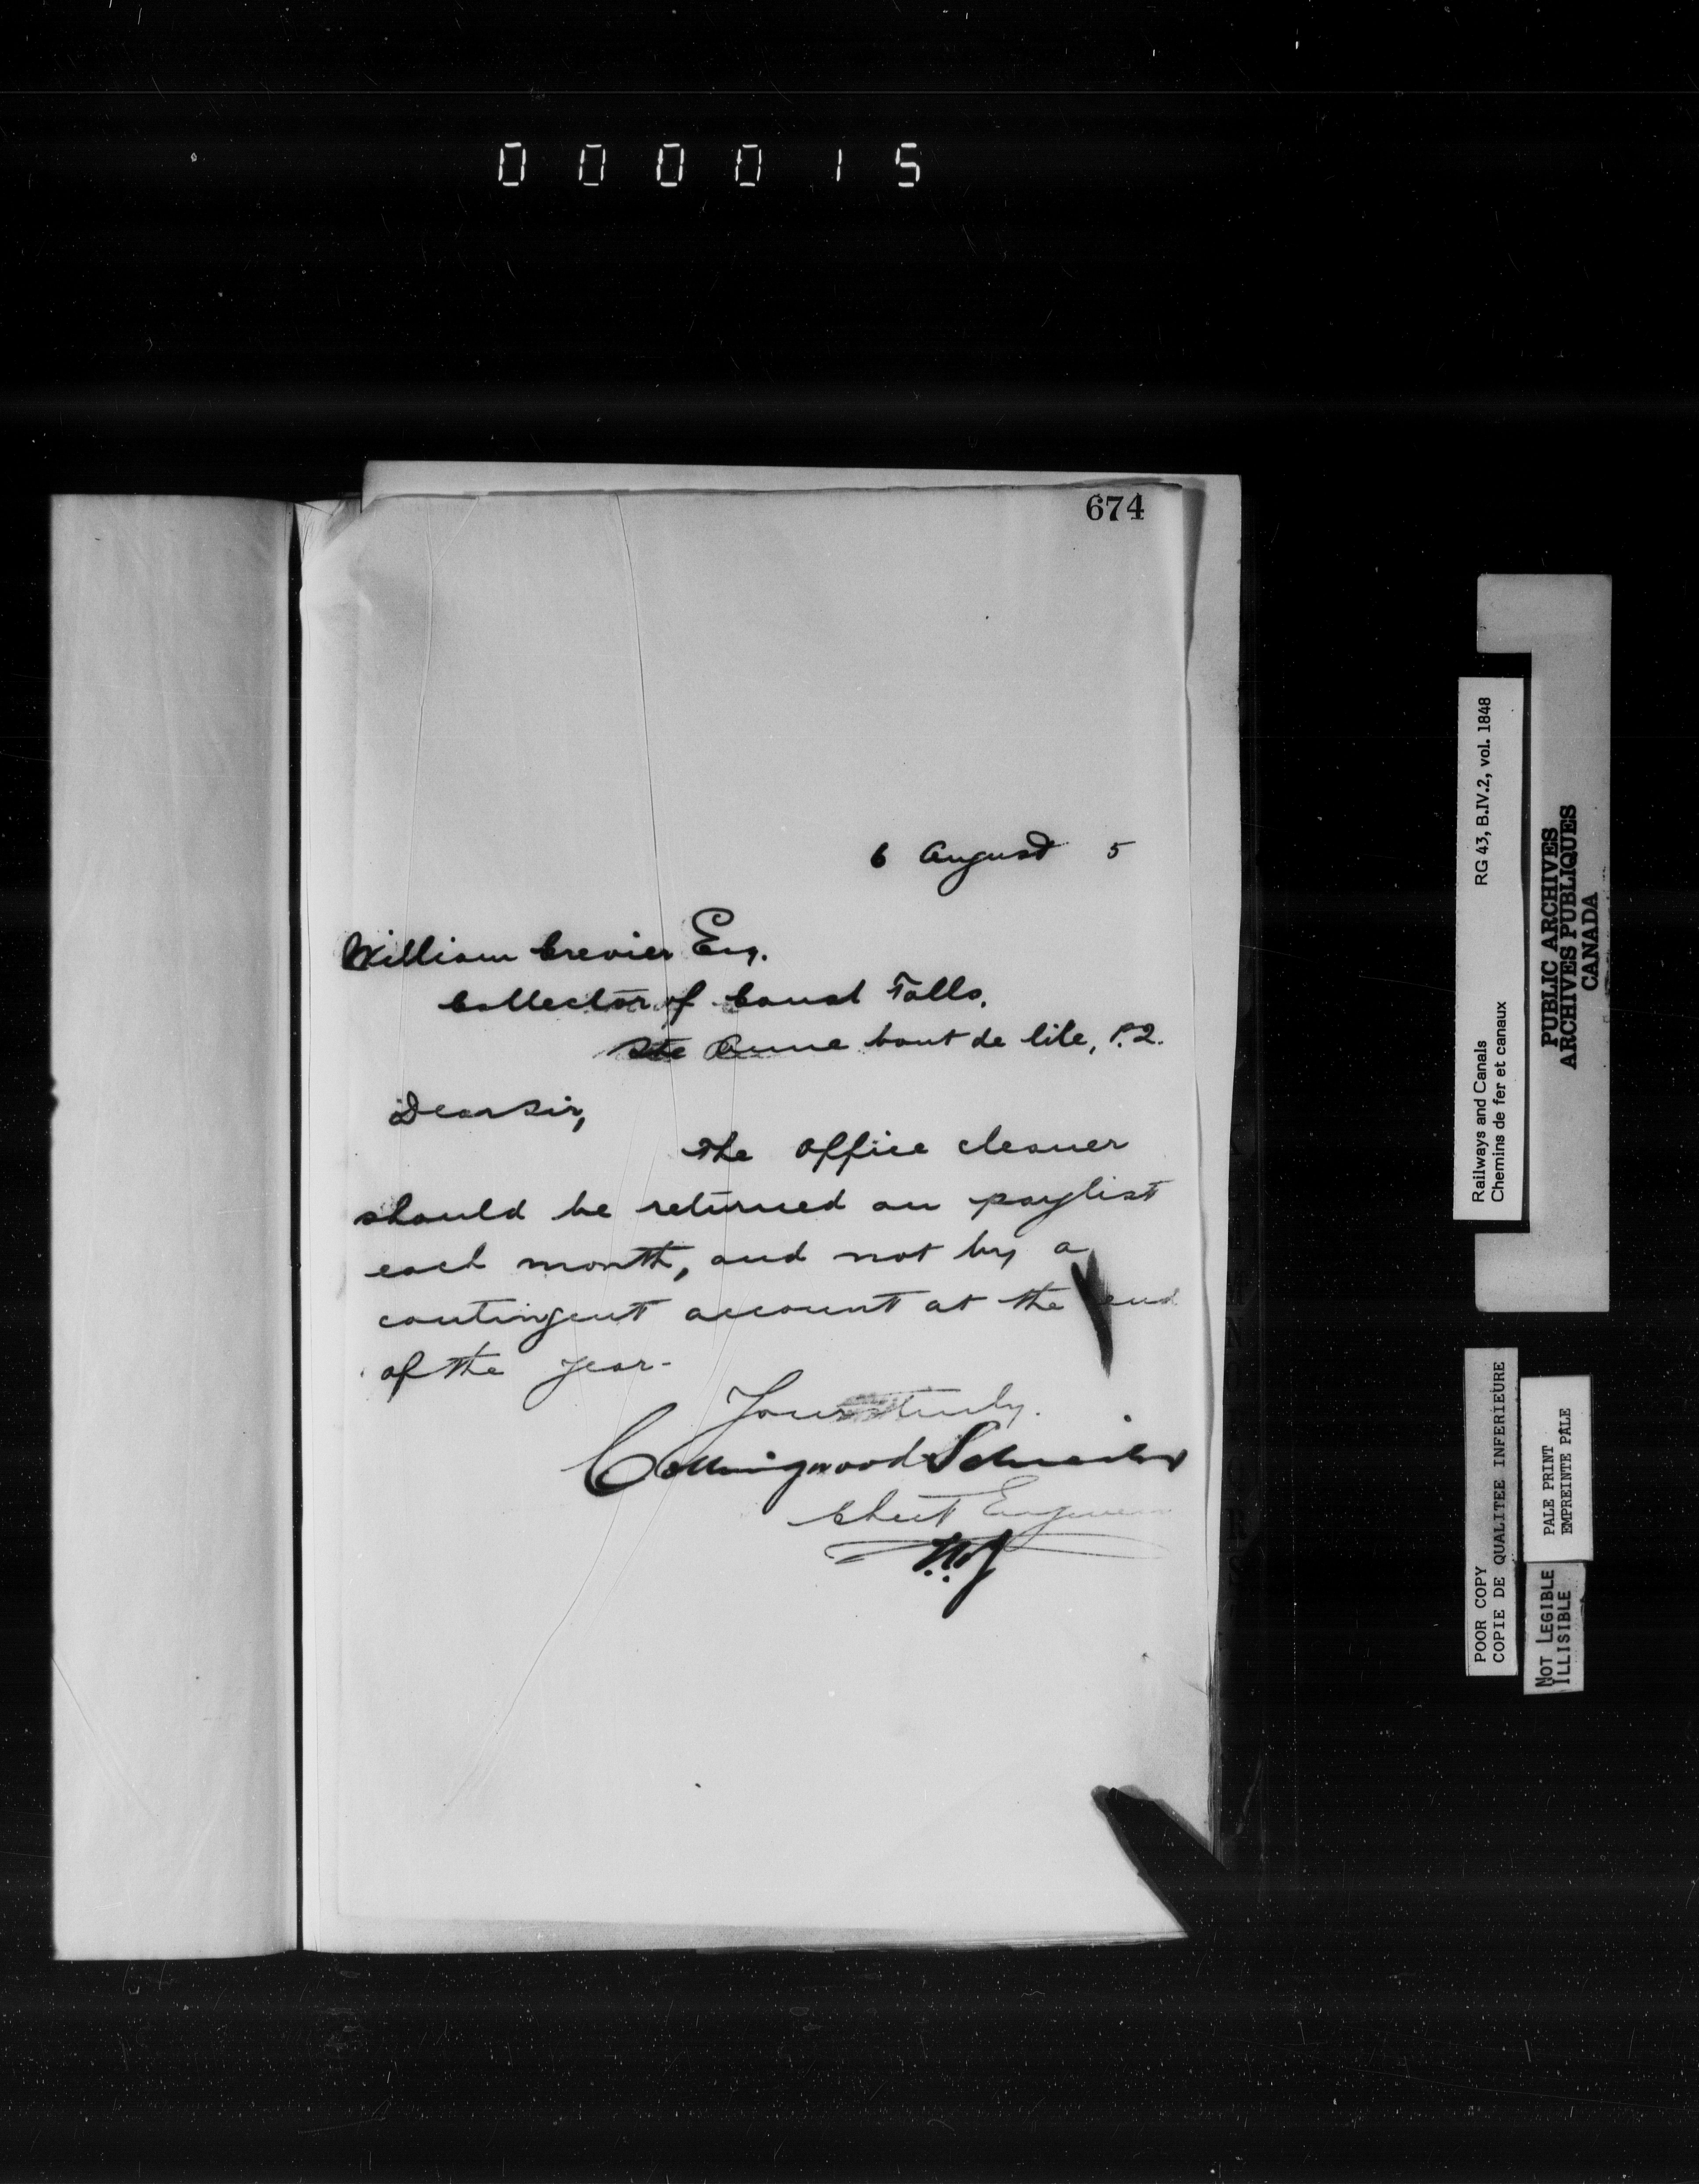 000015
674
6 August 5
William Crevier Esq.
Collector of Canal Tolls.
Ste Anne bout de lile, P.Q.
Dear Sir,
The office cleaner
should be returned on paylist
each month, and not by a
contingent account at the end
of the year-
Yours truly.
Collingwood Schreiber
Chief Engineer
Railways and Canals RG 43, B.IV.2, vol. 1848
Chemins de fer et canaux
PUBLIC ARCHIVES
ARCHIVES PUBLIQUES
CANADA
POOR COPY
COPIE DE QUALITEE INFERIEURE
PALE PRINT
EMPREINTE PALE
NOT LEGIBLE
ILLISIBLE